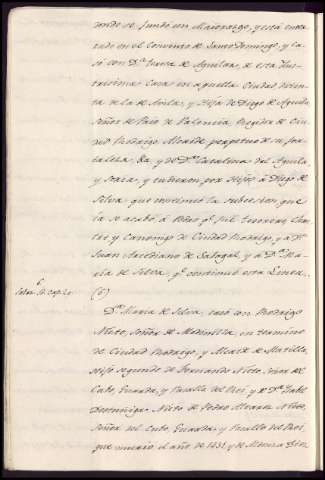 donde se fundó un Maiorazgo, y está enter
rado en el Convento de Santo Domingo, y ca
só con Dª de Aguilar, de esta Ilus
trisima Casa en aquella Ciudad, distin
ta de la de Avila, y Hija de Diego de Aguila
Señor de Paio de Valencia, Regidor de Ciu
dad Rodrigo Alcaide perpetuo de su for
taleza, &a. y de Dª Catalina del Aguila
y tubieron por Hijos á Diego de
Silva, que continuó la subcesion, que
la se acabó, á Pedro qe fue tesorero, Chan
tre y Canonigo de Ciudad Rodrigo, y á Dn
Juan Arcediano de Sabugal, y á Dª Ma
ria de Silva, qe continuó esta Linea.
(6)
6
Salaz. Cap. 20
Dª Maria de Silva, casó con Rodrigo
Nieto, Señor de Madinilla, en termino
de Ciudad Rodrigo, y Alcaide de Matilla,
Hijo segundo de Hernando Nieto, Señor del
Cubo, Guarda, y Vasallo del Rei, y de Dª Isabel
Nieto de Pedro Alvarez Nieto,
Señor del Cubo, Guarda, y Vasallo del Rei,
que murio el año de 1431, y de